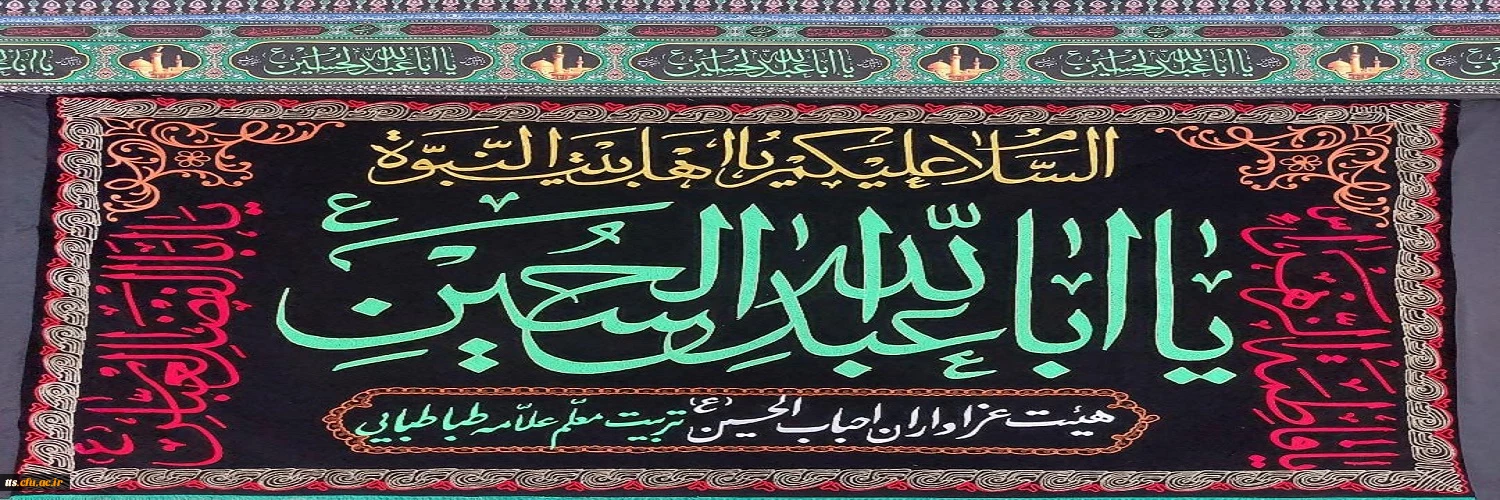 یا ابا عبد الله الحسین یا ابا عبد الله الحسین یا ابا عبد الله الحسین
السَّلامُ عَلَیکُم یا اَهلَ بَیتِ النُّبُوَّة
یا ابا عبدالله الحُسَینِ ع
یا فاطمة الزهراء
یا اباالفضل العباس (ع)
هیئت عزاداران احباب الحسین (ع) تربیت معلّم علاّمه طباطبایی
us.cfu.ac.ir